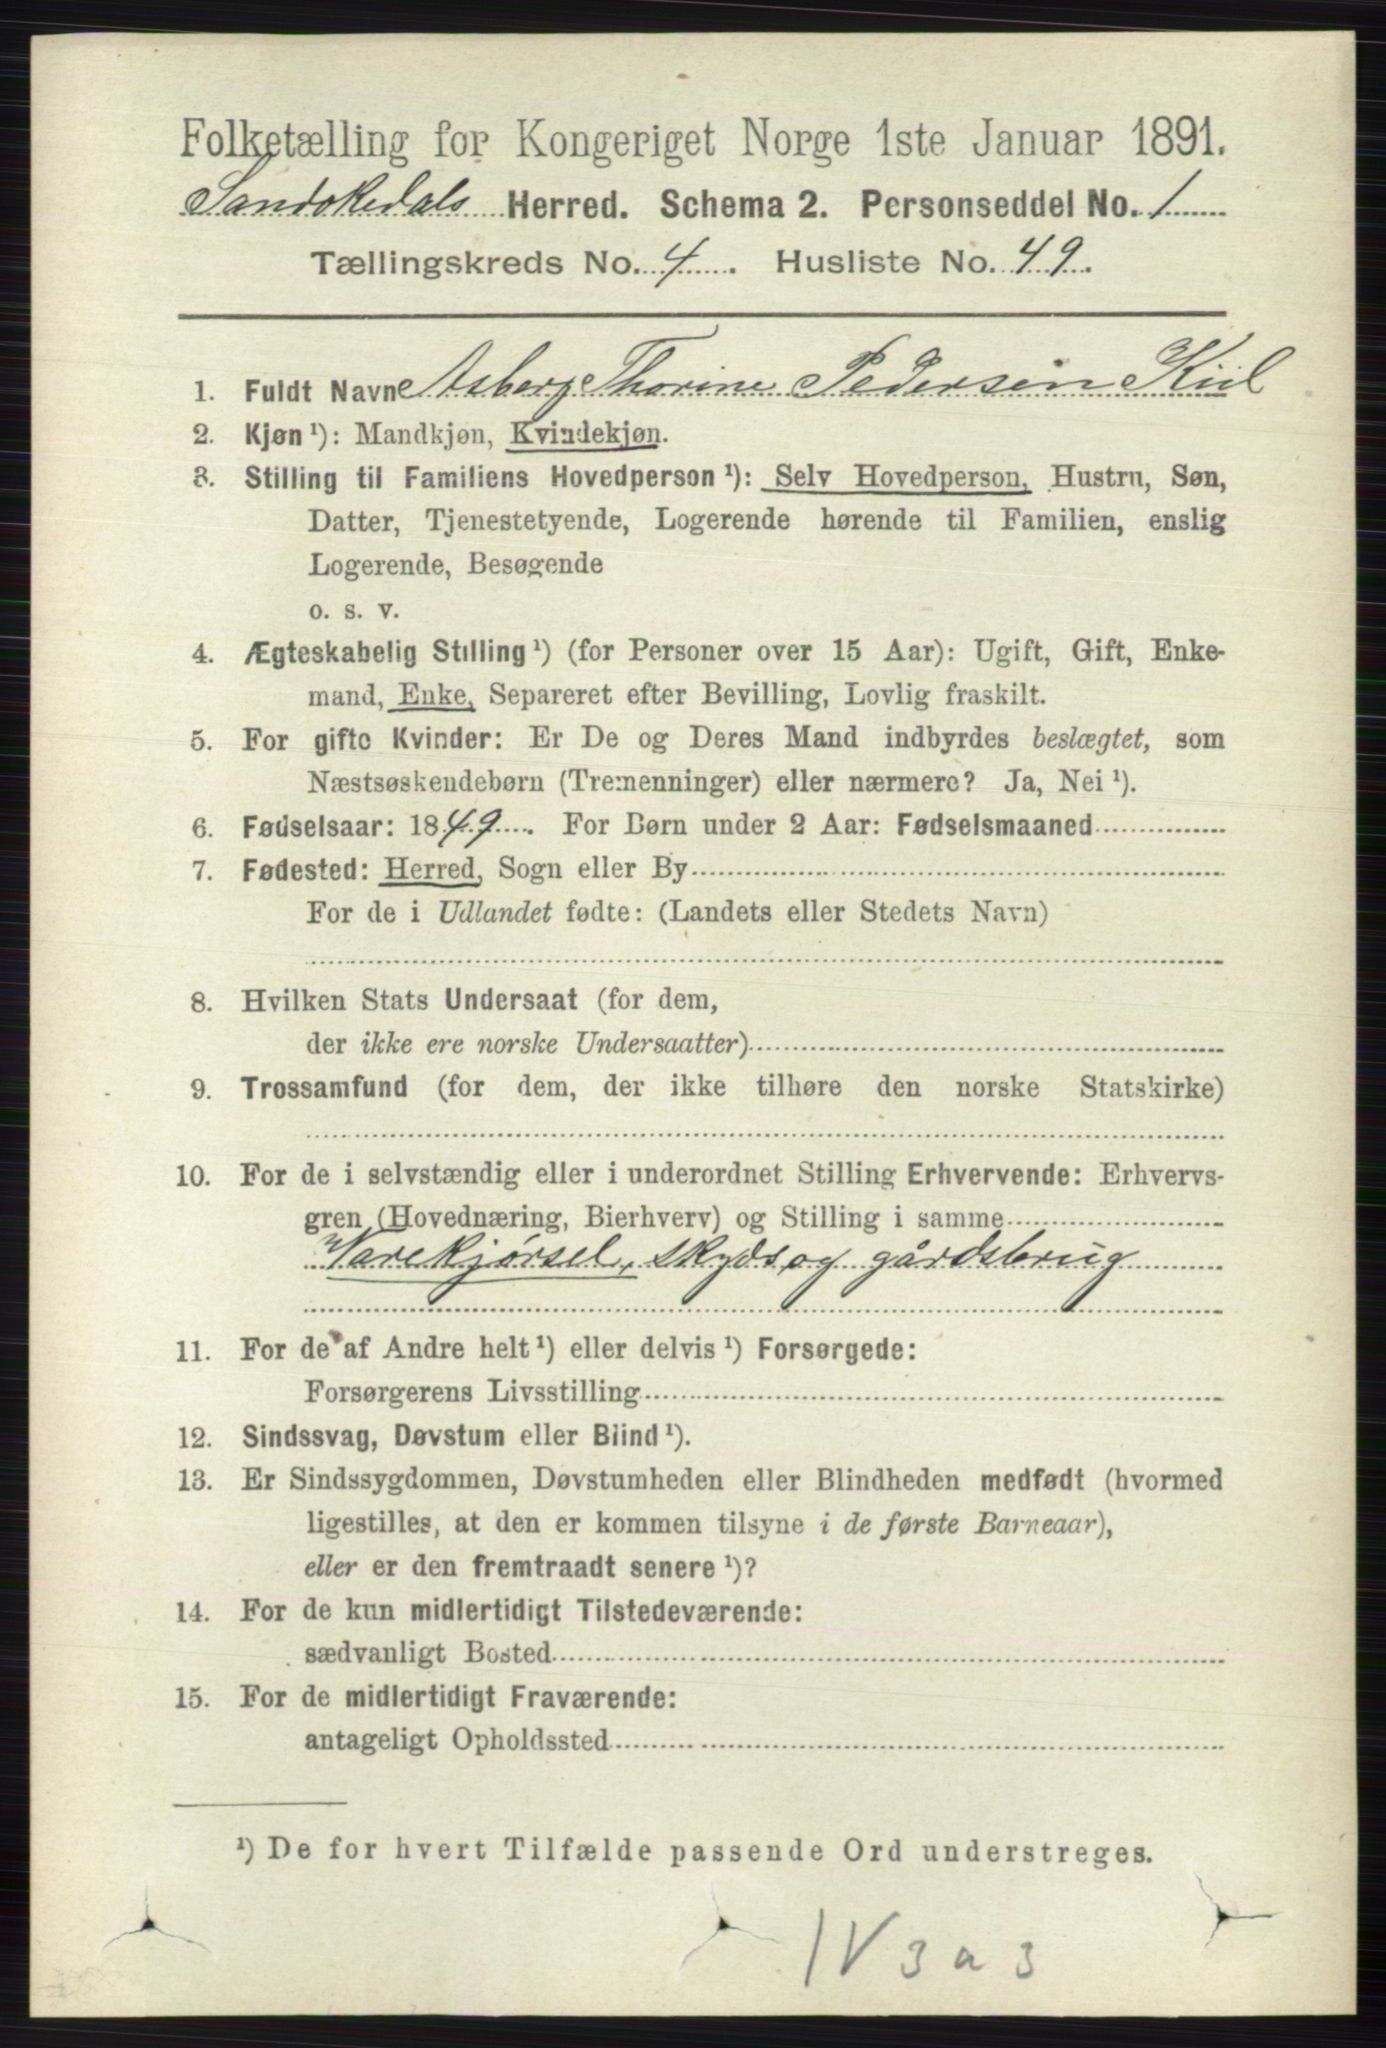 Folketælling for Kongeriget Norge 1ste Januar 1891.
Sandøkedals Herred. Schema 2. Personseddel No. 1
Tællingskreds No. 4. Husliste No. 49.
1. Fuldt Navn Asberg Thorine Pedersen Kiil
2. Kjøn ¹): Mandkjøn, Kvindekjøn.
3. Stilling til Familiens Hovedperson ¹): Selv Hovedperson, Hustru, Søn,
Datter, Tjenestetyende, Logerende hørende til Familien, enslig
Logerende, Besøgende
o. s. v.
4. Ægteskabelig Stilling ¹) (for Personer over 15 Aar): Ugift, Gift, Enke-
mand, Enke, Separeret efter Bevilling, Lovlig fraskilt.
5. For gifte Kvinder: Er De og Deres Mand indbyrdes beslægtet, som
Næstsøskendebørn (Tremenninger) eller nærmere? Ja, Nei ¹).
6. Fødselsaar: 1849. For Børn under 2 Aar: Fødselsmaaned
7. Fødested: Herred, Sogn eller By
For de i Udlandet fødte: (Landets eller Stedets Navn)
8. Hvilken Stats Undersaat (for dem,
der ikke ere norske Undersaatter)
9. Trossamfund (for dem, der ikke tilhøre den norske Statskirke)
10. For de i selvstændig eller i underordnet Stilling Erhvervende: Erhvervs-
gren (Hovednæring, Bierhverv) og Stilling i samme
Varekjørsel, skyds og gårdsbrug
11. For de af Andre helt ¹) eller delvis ¹) Forsørgede:
Forsørgerens Livsstilling
12. Sindssvag, Døvstum eller Blind ¹).
13. Er Sindssygdommen, Døvstumheden eller Blindheden medfødt (hvormed
ligestilles, at den er kommen tilsyne i de første Barneaar),
eller er den fremtraadt senere ¹)?
14. For de kun midlertidigt Tilstedeværende:
sædvanligt Bosted
15. For de midlertidigt Fraværende:
antageligt Opholdssted
¹) De for hvert Tilfælde passende Ord understreges.
IV 3 a 3